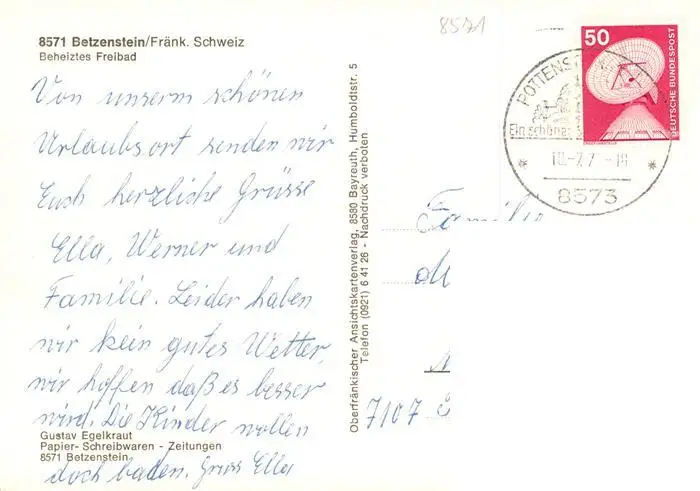 8571
8571 Betzenstein/Fränk. Schweiz
Beheiztes Freibad
Von unserm schönen
Urlaubsort senden wir
Euch herzliche Grüsse
Ella, Werner und
Familie. Leider haben
wir kein gutes Wetter,
wir hoffen daß es besser
wird. Die Kinder wollen
doch baden. Gruss Ella
Gustav Egelkraut
Papier- Schreibwaren - Zeitungen
8571 Betzenstein
Oberfränkischer Ansichtskartenverlag, 8580 Bayreuth, Humboldtstr. 5
Telefon (0921) 6 41 26 - Nachdruck verboten
50
DEUTSCHE BUNDESPOST
POTTENST
Ein schöner
8573
Familie
7107